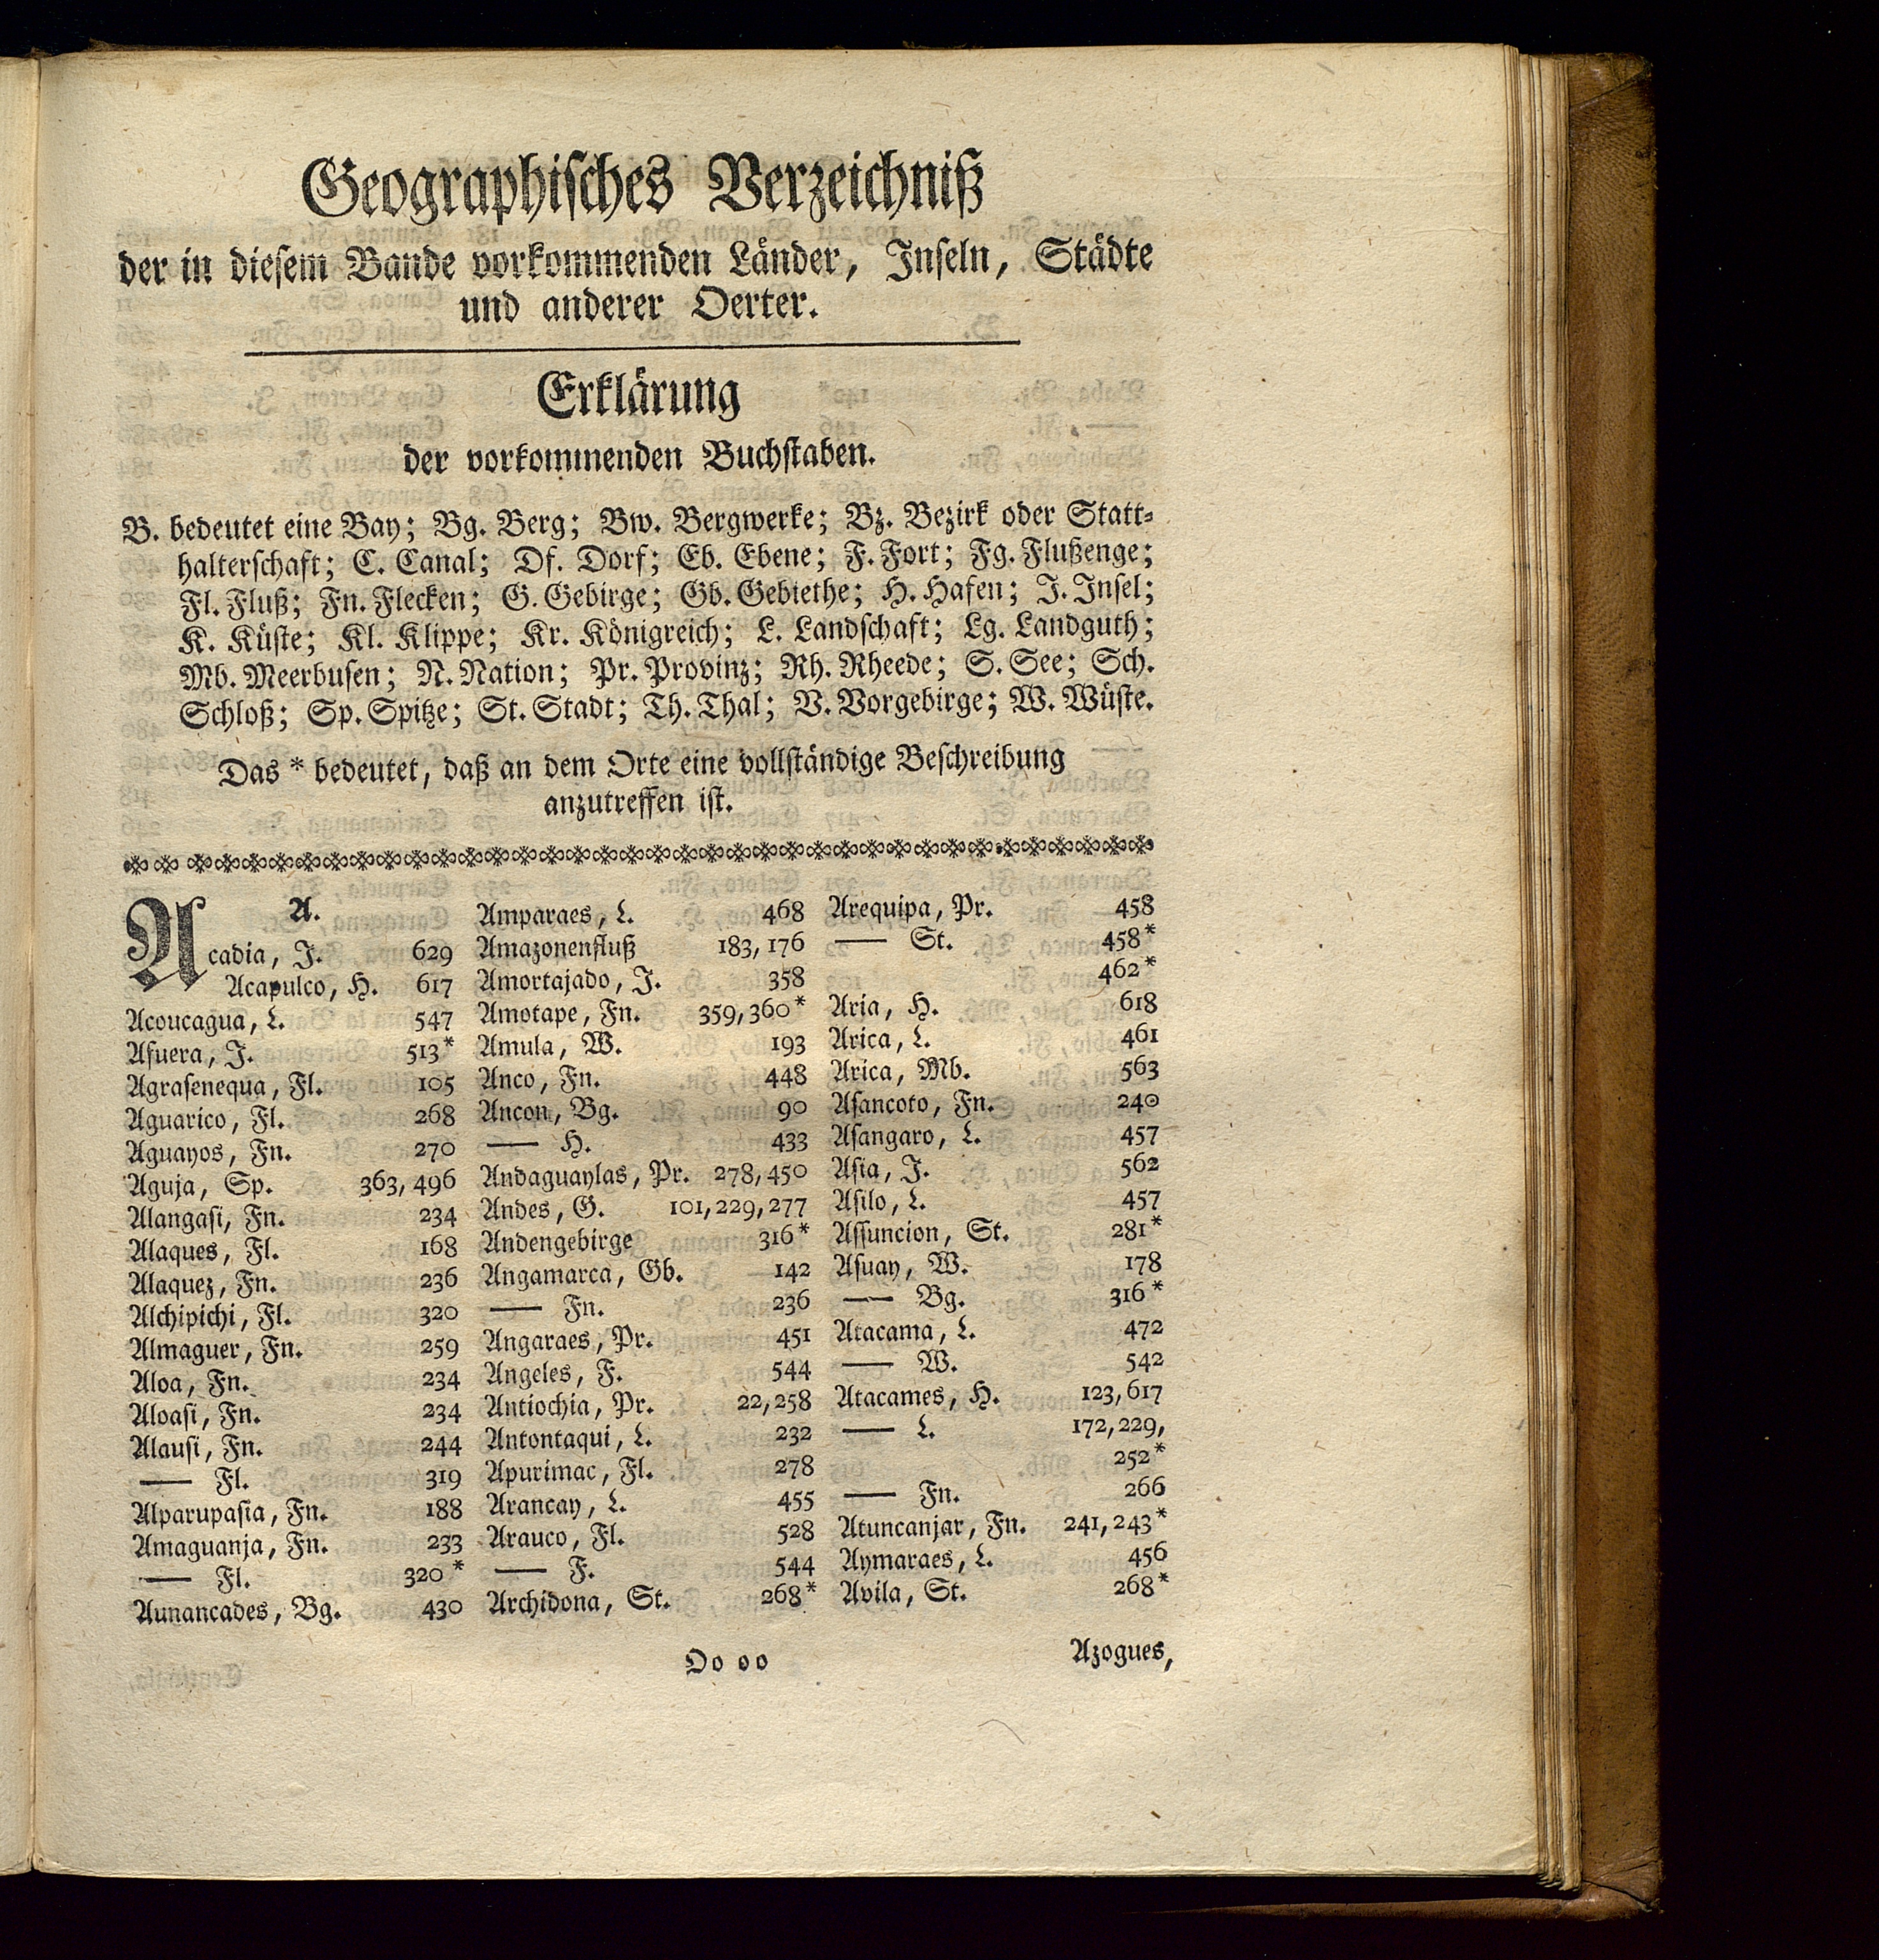 Geographisches Verzeichniß
der in diesem Bande vorkommenden Länder, Inseln, Städte
und anderer Oerter.
Erklärung
der vorkommenden Buchstaben.
B. bedeutet eine Bay; Bg. Berg; Bw. Bergwerke; Bz. Bezirk oder Statt-
halterschaft; C. Canal; Df. Dorf; Eb. Ebene; F. Fort; Fg. Flußenge;
Fl. Fluß; Fn. Flecken; G. Gebirge; Gb. Gebiethe; H. Hafen; I. Insel;
K. Küste; Kl. Klippe; Kr. Königreich; L. Landschaft; Lg. Landguth;
Mb. Meerbusen; N. Nation; Pr. Provinz; Rh. Rheede; S. See; Sch.
Schloß; Sp. Spitze; St. Stadt; Th. Thal; V. Vorgebirge; W. Wüste.
Das * bedeutet, daß an dem Orte eine vollständige Beschreibung
anzutreffen ist.
A.
Acadia, I. 629
Acapulco, H. 617
Acoucagua, L. 547
Afuera, I. 513*
Agrasenequa, Fl. 105
Aguarico, Fl. 268
Aguayos, Fn. 270
Aguja, Sp. 363, 496
Alangasi, Fn. 234
Alaques, Fl. 168
Alaquez, Fn. 236
Alchipichi, Fl. 320
Almaguer, Fn. 259
Aloa, Fn. 234
Aloasi, Fn. 234
Alausi, Fn. 244
—— Fl. 319
Alparupasia, Fn. 188
Amaguanja, Fn. 233
—— Fl. 320*
Aunancades, Bg. 430
Amparaes, L. 468
Amazonenfluß 183, 176
Amortajado, I. 358
Amotape, Fn. 359, 360*
Amula, W. 193
Anco, Fn. 448
Ancon, Bg. 90
—— H. 433
Andaguaylas, Pr. 278, 450
Andes, G. 101, 229, 277
Andengebirge 316*
Angamarca, Gb. 142
—— Fn. 236
Angaraes, Pr. 451
Angeles, F. 544
Antiochia, Pr. 22, 258
Antontaqui, L. 232
Apurimac, Fl. 278
Arancay, L. 455
Arauco, Fl. 528
—— F. 544
Archidona, St. 268*
Arequipa, Pr. 458
—— St. 458*
462*
Aria, H. 618
Arica, L. 461
Arica, Mb. 563
Asancoto, Fn. 240
Asangaro, L. 457
Asia, I. 562
Asilo, L. 457
Assuncion, St. 281*
Asuay, W. 178
—— Bg. 316*
Atacama, L. 472
—— W. 542
Atacames, H. 123, 617
—— L. 172, 229,
252*
—— Fn. 266
Atuncanjar, Fn. 241, 243*
Aymaraes, L. 456
Avila, St. 268*
Oo oo
Azogues,